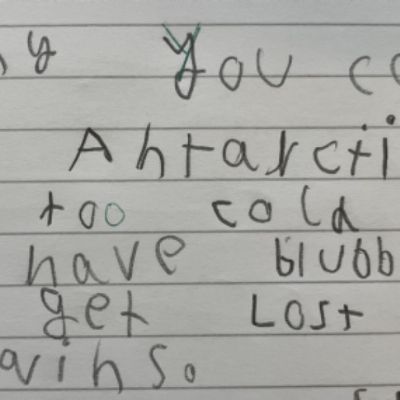 y You co
Antarcti
too cold
have blubb
get Lost
ains.